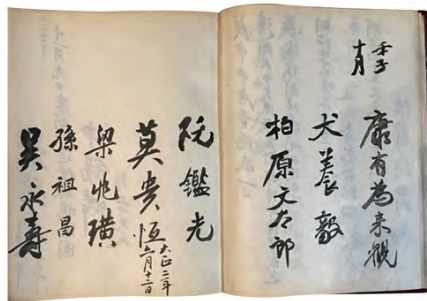 壬子
十月
康有為来観
犬養毅
柏原文太郎
阮鑑光
莫貴恒
大正二年
六月十三日
梁兆璜
孫祖昌
吳永壽